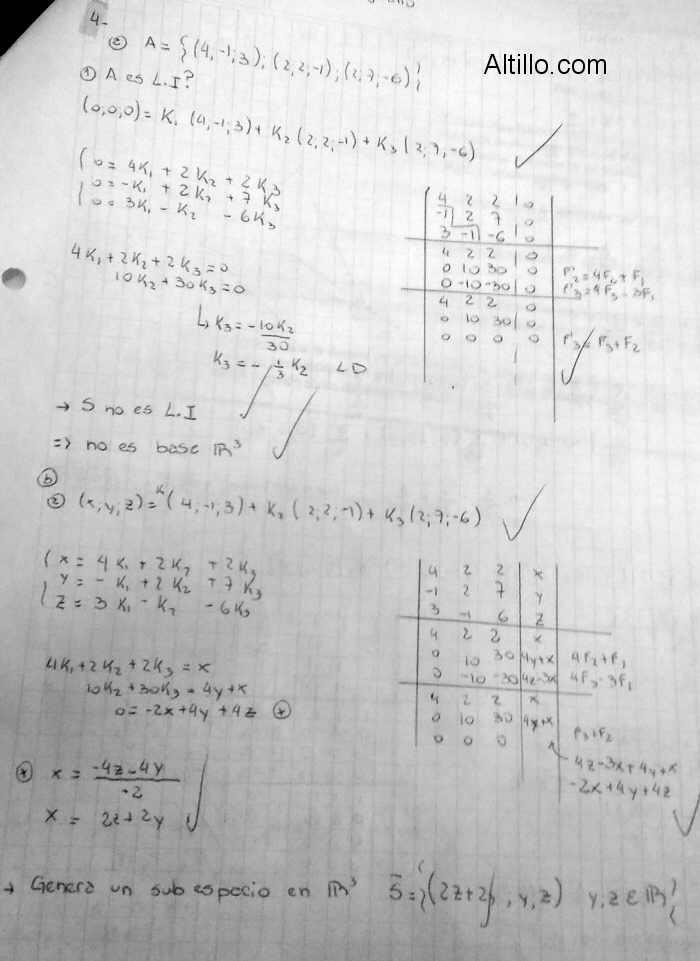 4-
Altillo.com
ⓐ A = {(4,-1,3); (2,2,-1); (2,7,-6)}
① A es L.I?
(0,0,0) = K₁ (4,-1,3) + K₂ (2,2,-1) + K₃ (2,7,-6)
0 = 4K₁ + 2K₂ + 2K₃
0 = -K₁ + 2K₂ + 7K₃
0 = 3K₁ - K₂ - 6K₃
4 2 2 | 0
-1 2 7 | 0
3 -1 -6 | 0
4 2 2 | 0
0 10 30 | 0 F'₂ = 4F₂ + F₁
0 -10 -30 | 0 F'₃ = 4F₃ - 3F₁
4 2 2 | 0
0 10 30 | 0
0 0 0 | 0 F'₃ = F₃ + F₂
4K₁ + 2K₂ + 2K₃ = 0
10K₂ + 30K₃ = 0
↳ K₃ = -10K₂/30
K₃ = -1/3 K₂ LD
→ S no es L.I
=> no es base ℝ³
ⓑ
② (x,y,z) = K (4,-1,3) + K₂ (2,2,-1) + K₃ (2,7,-6)
x = 4K₁ + 2K₂ + 2K₃
y = -K₁ + 2K₂ + 7K₃
z = 3K₁ - K₂ - 6K₃
4 2 2 | x
-1 2 7 | y
3 -1 6 | z
4 2 2 | x
0 10 30 | 4y+x 4F₂+F₁
0 -10 -30 | 4z-3x 4F₃-3F₁
4 2 2 | x
0 10 30 | 4y+x
0 0 0 F₃+F₂
4z-3x+4y+x
-2x+4y+4z
4K₁ + 2K₂ + 2K₃ = x
10K₂ + 30K₃ = 4y+x
0 = -2x+4y+4z ⊛
⊛ x = (-4z-4y)/-2
x = 2z+2y
→ Genera un subespacio en ℝ³ S̄ = {(2z+2y, y, z) y,z ∈ ℝ}